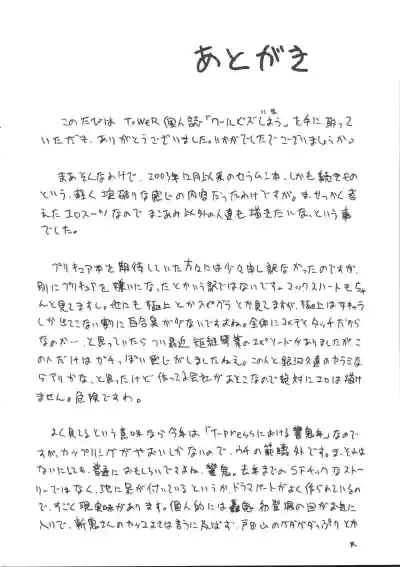 あとがき
このたびは TOWER個人誌「ワールドイズ」を手に取って
いただき、ありがとうございました。いかがでしたでございましょうか。
まあそんなわけで、2003年12月以来のセラムン本、しかも続きもの
という、軽く型破りな感じの内容だったわけですが。ま、せっかく考
えたエロスーツなので まこあみ以外の人達も描きたいな、という事
でした。
プリキュア本を期待していた方々には少々申し訳なかったのですが、
別にプリキュアを嫌いになったとかいう訳ではないです。マックスハートもちゃ
んと見てますし。他にも極上とかスピグラとか見てますが、極上は女キャラ
しか出てこない割に百合臭が少ないですよね。全体にコメディタッチだから
なのか…、と思っていたら つい最近 のエピソードがありましたが、こ
の人だけはガチっぽい感じがしましたねえ。この人と銀河久遠のカラミな
らアリかな、と思ったけど 作ってる会社があとこなので絶対にエロは描け
ません。危険ですわ。
よく見てるという意味なら今年は「T-pressにおける響鬼年」なので
すが、カップリングがやおいしかないので、ウチの範疇外です。ま、それは
ないにしても、普通におもしろいですよね、響鬼。去年までのSFチックなスト
ーリーではなく、地に足が付いているというか、ドラマパートがよく作られているの
で、すごく現実味があります。個人的には轟鬼 初登場の回がお気に
入りで、斬鬼さんのカッコよさは言うに及ばず、戸田山のグダグダっぷりとか